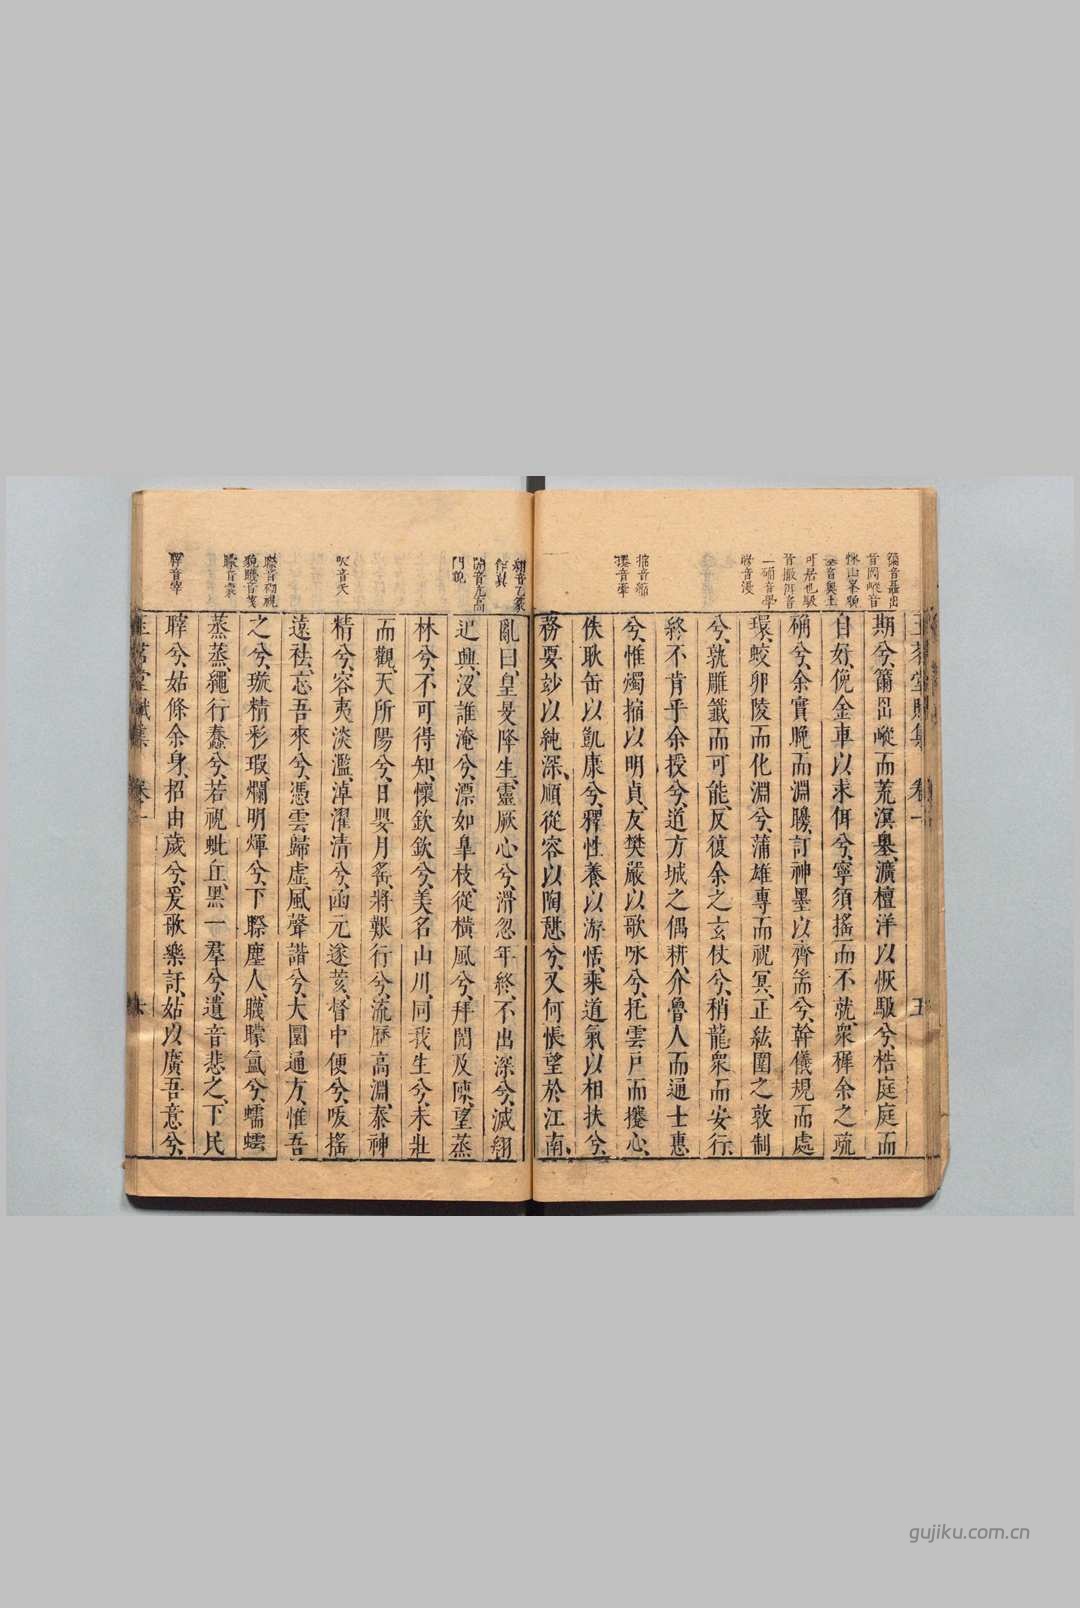 玉茗堂賦集 卷一 五
期兮簫嵒嵷而荒溟墺瀇𣶏洋以恢馺兮梏庭庭而
自好俛金車以求佴兮寧須搖而不就衆穉余之疏
硧兮余實晚而淵䁾訂神墨以齊耑兮幹儀規而處
環蛟卵陵而化淵兮蒲雄專而祝冥正紘圍之敦制
兮孰雕籤而可能反復余之玄杖兮稍龍衆而安行
終不肯乎余授兮道方城之偶耕介魯人而通士惠
兮惟燭摍以明貞友樊嚴以歌咏兮托雲戸而攓心
佚耿缶以凱康兮釋性養以游恬乘道氣以相扶兮
務要竗以純深順從容以陶憇兮又何悵望於江南
亂曰皇旻降生靈厥心兮滑忽年終不出深兮滅翔
迅興沒誰淹兮漂如臯枝從橫風兮拜閲及陳望蒸
林兮不可得知懷欽欽兮美名山川同我生兮未壯
而觀天所陽兮日嬰月䍃將艱行兮流歷高淵泰神
精兮容夷淡濫淖濯清兮函元遂荄督中便兮㕮搖
遠袪忘吾來兮憑雲歸虛風聲諧兮大圜通方惟吾
之兮璇精彩瑕爛明煇兮下瞭塵人䁾矇氲兮蠕蠕
蒸蒸繩行蠢兮若視蚍丘黑一羣兮遺音悲之下民
聹兮姑條余身招由歲兮爰歌樂訏姑以廣吾意兮
玉茗堂賦集 卷一 六
gujiku.com.cn